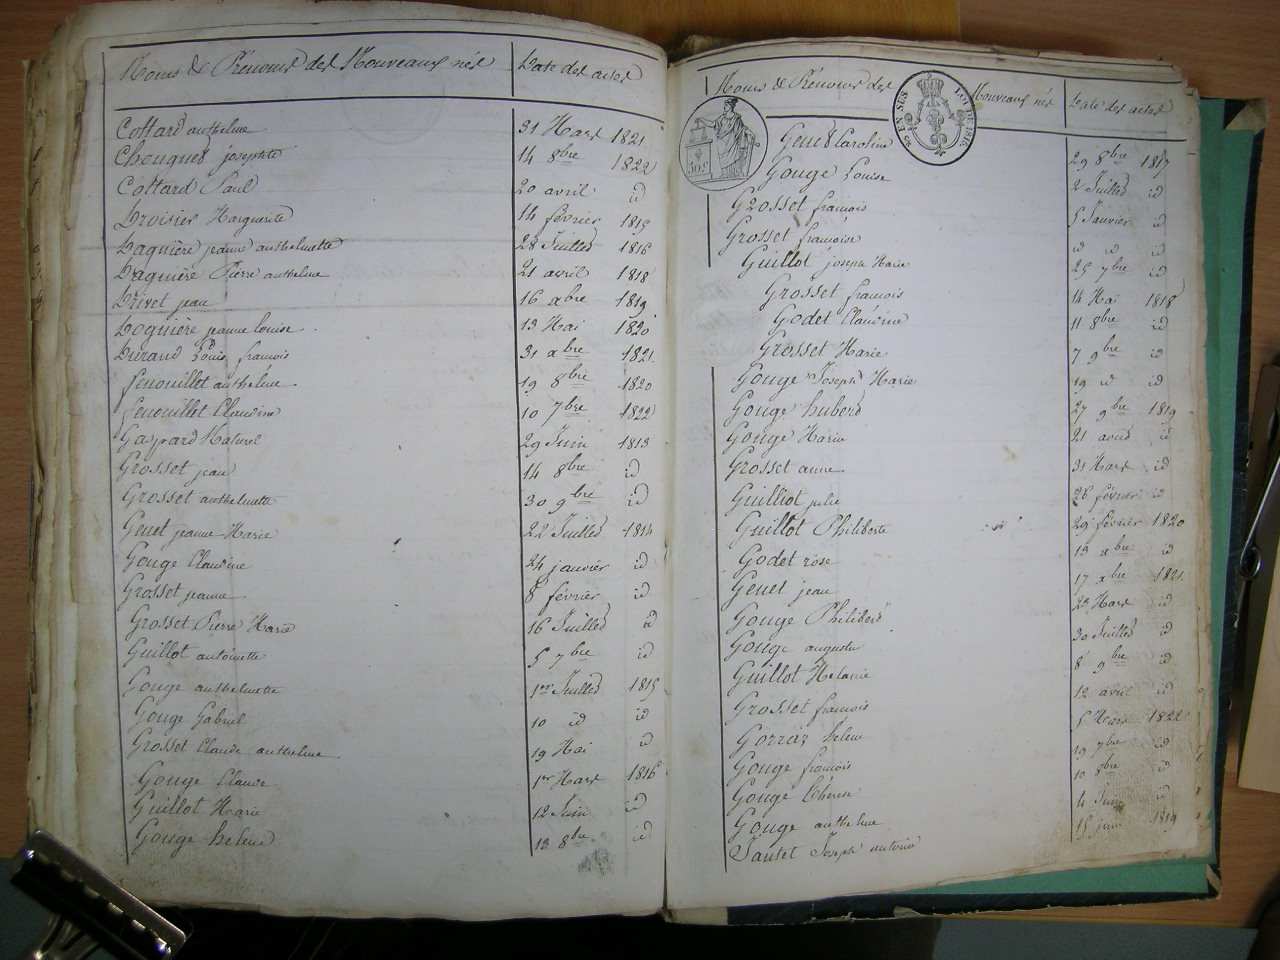 Noms & Prénoms des Nouveaux nés Date des actes
Cottard anthelme 31 Mars 1821
Chouquet josephte 14 8bre 1822
Cottard Paul 20 avril id
Droisier Marguerite 14 février 1815
Daguière jeanne anthelmette 28 Juillet 1816
Daguière Pierre anthelme 21 avril 1818
Drivet jean 16 xbre 1819
Doguière jeanne Louise 13 Mai 1820
Durand Louis françois 31 xbre 1821
fenouillet anthelme 19 8bre 1820
fenouillet Claudine 10 7bre 1822
Gaspard Naturel 29 Juin 1813
Grosset jean 14 8bre id
Grosset anthelmette 30 9bre id
Genet jeanne Marie 22 Juillet 1814
Gouge Claudine 24 janvier id
Grosset jeanne 8 février id
Grosset Pierre Marie 16 Juillet id
Guillot antoinette 5 7bre id
Gouge anthelmette 1er Juillet 1815
Gouge Gabriel 10 id id
Grosset Claude anthelme 19 Mai id
Gouge Claude 1er Mars 1816
Guillot Marie 12 Juin id
Gouge helene 13 8bre id
Noms & Prénoms des Nouveaux nés Date des actes
EN SUS LOI DE 1816
50c
Genet Caroline 29 8bre 1817
Gouge Louise 2 Juillet id
Grosset francois 5 Janvier id
Grosset francoise id id id
Guillot joseph Marie 25 7bre id
Grosset francois 14 Mai 1818
Godet Claudine 11 8bre id
Grosset Marie 7 9bre id
Gouge Joseph Marie 19 id id
Gouge hubert 27 9bre 1819
Gouge Marie 21 aout id
Grosset anne 31 Mars id
Guilliot julie 26 fevrier id
Guillot Philiberte 29 février 1820
Godet rose 13 xbre id
Genet jean 17 xbre 1821
Gouge Philibert 23 Mars id
Gouge auguste 30 Juillet id
Guillot Melanie 8 9bre id
Grosset francois 12 avril id
Gorraz helene 5 Mars 1822
Gouge francois 19 7bre id
Gouge therese 10 8bre id
Gouge anthelme 4 Juin id
Jantet Joseph antoine 15 juin 1819